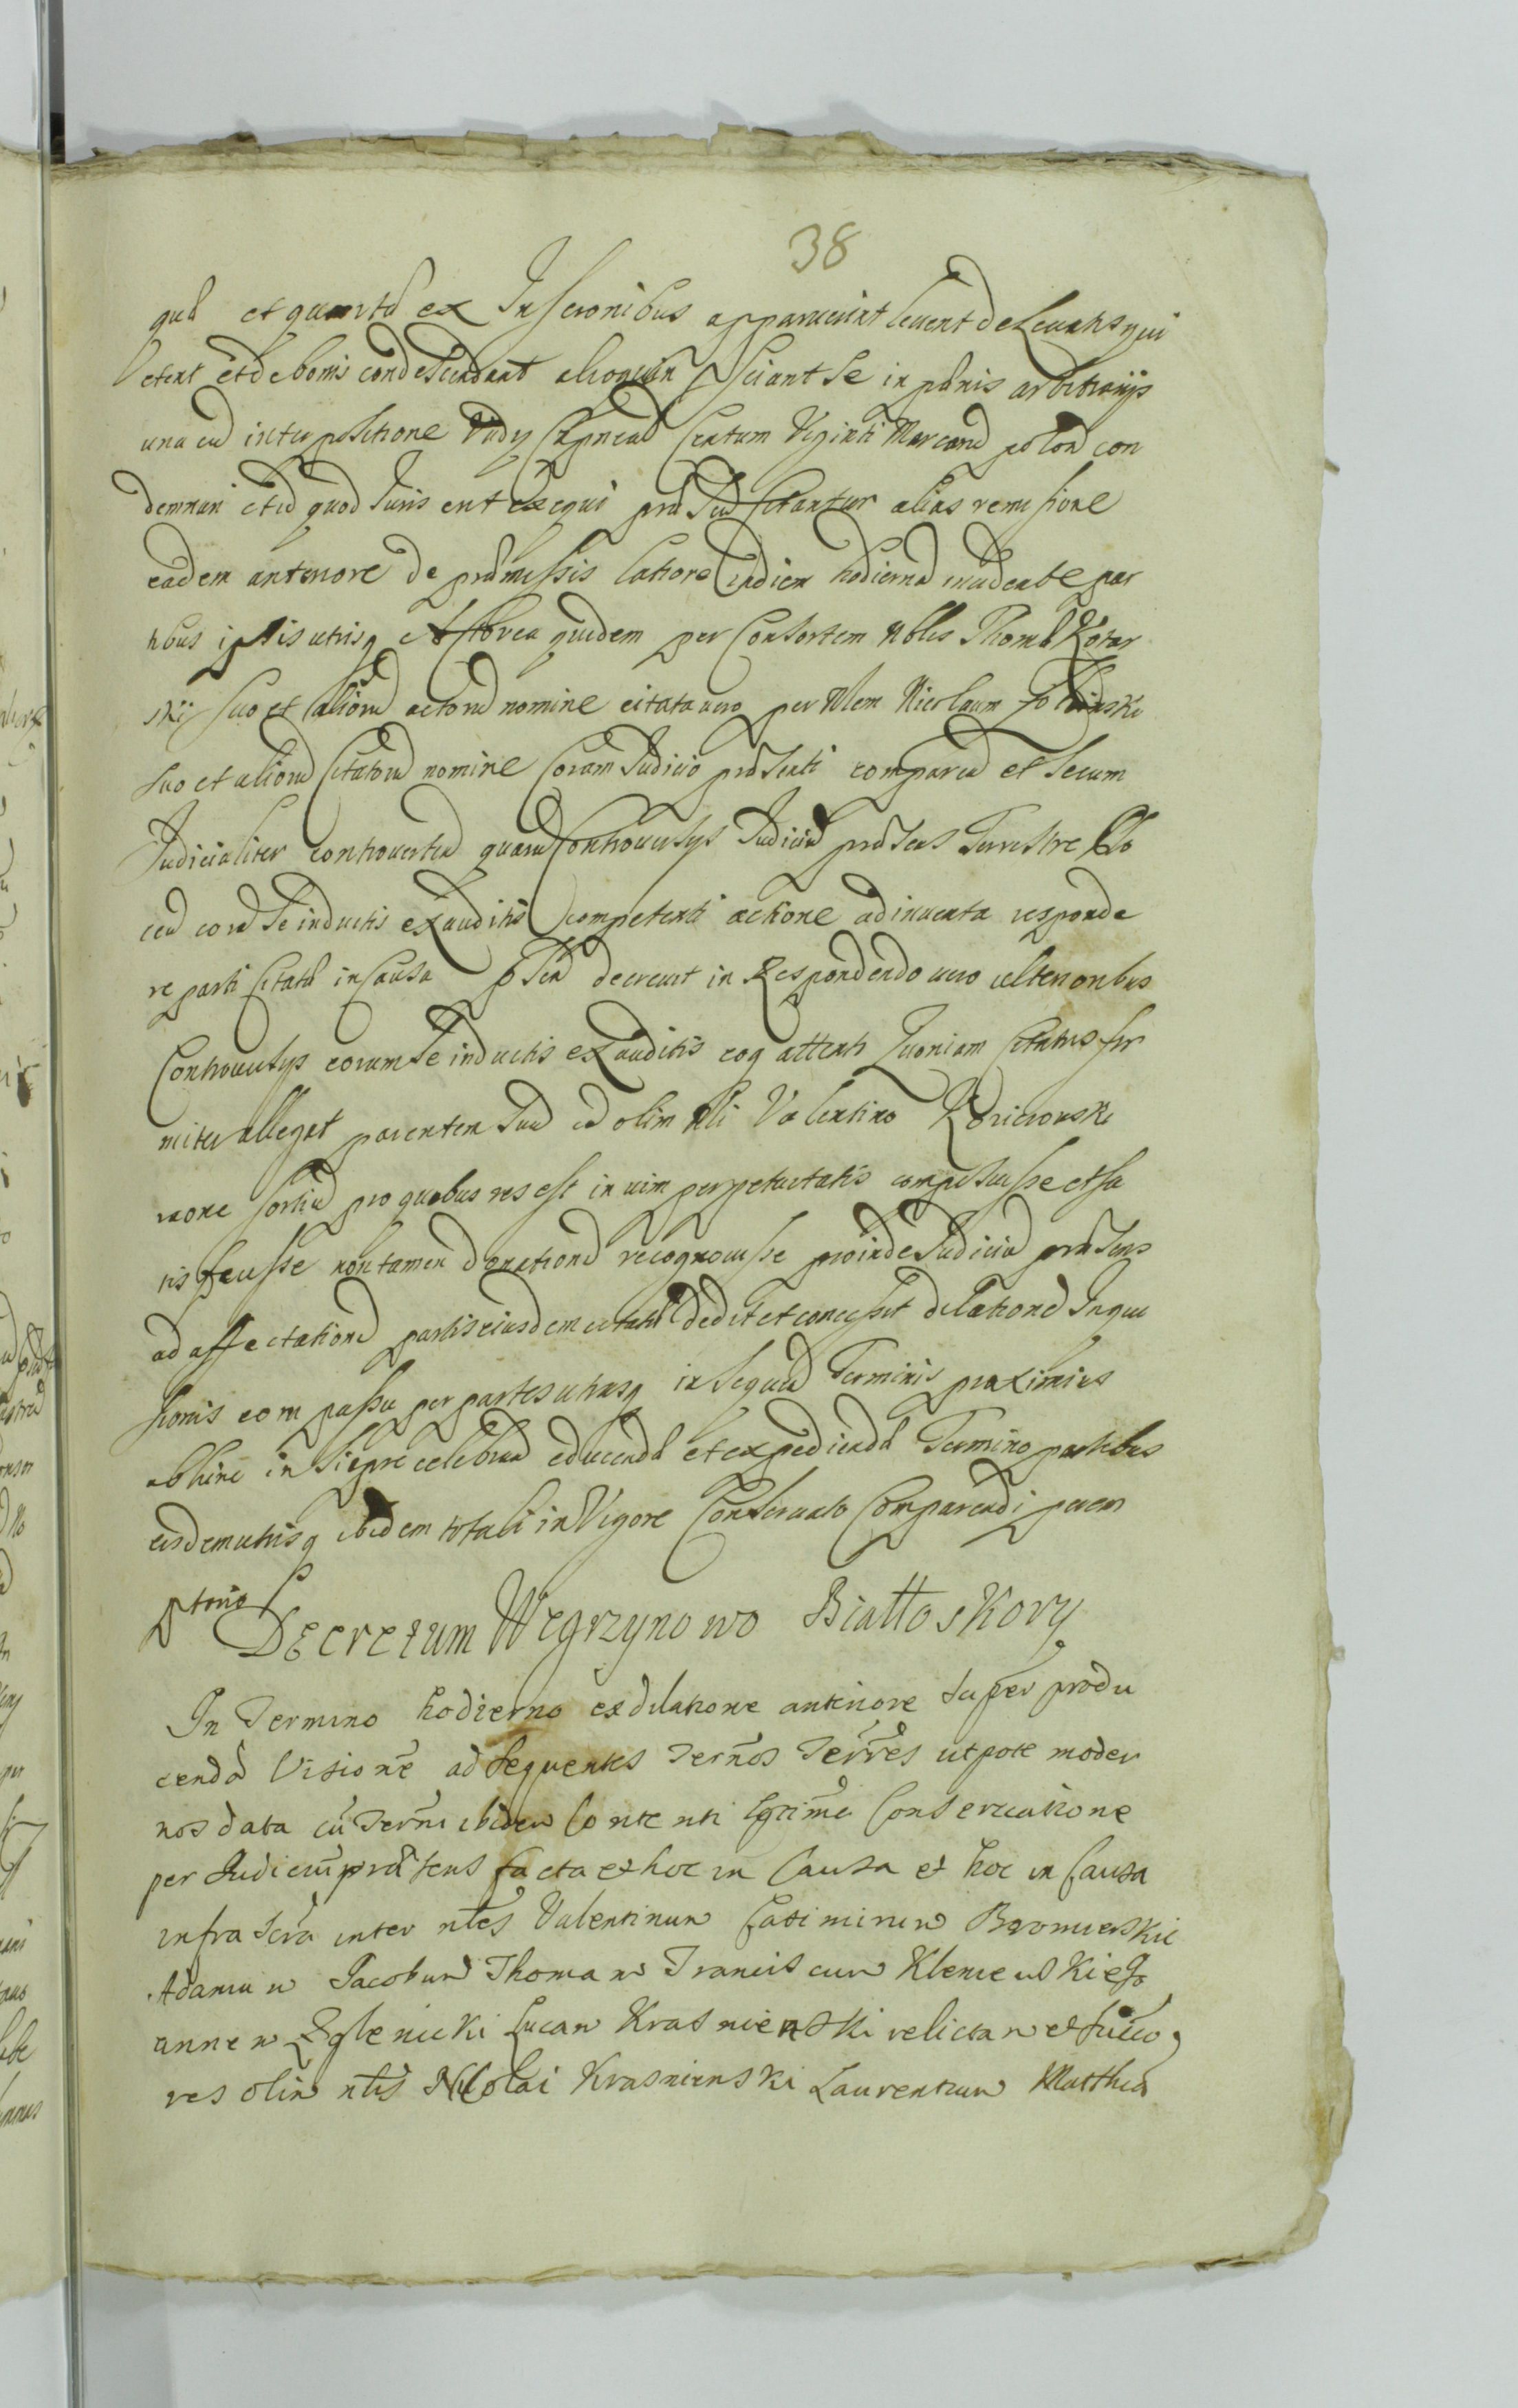 38
quæ et quanta ex Inscronibus apparuerint leuent de Leuatis qui
etent et de bonis condescendant alioquin sciant se in pænis arbitrarijs
una cu interpositione Vadij Centum Viginti Marcaru polon con
demnari et id quod Juris erit exequi citantur alias remissione
eadem anteriore de præmissis latiore in diem hodiernã euidente par
tibus ipsis utrisq Actorea quidem per Consortem Nblis Thomæ Kotar
ski suo et aliorũ actorũ nomine citata uero per Nlem Nicolaum
suo et aliorũ Citatorũ nomine Coram Judicio præsenti comparẽ et secum
Judicialiter controuerteñ quarũ Controuersijs Judiciũ præsens Terrestre Plo
ceñ corã se inductis exauditis competenti actione adinuenta responde
re parti Citatæ in Causa pñti decreuit in Respondendo uero ulterioribus
Controuersijs coram se inductis exauditis eoq attento Quoniam Citatus fir
miter allegat parentem suũ cũ olim Nli Valentino
rõne sortiũ pro quibus res est in uim perpetuitatis composuisse et sa
tisfecisse non tamen donationẽ recognouisse proinde Judiciũ præsens
ad affectationẽ partis eiusdem citatæ dedit et concessit dilationẽ Inqui
sitionis eom passu per partes utrasq in sequẽ Terminis proximius
abhinc in Sieprc celebrañ educendæ et expediendæ Termino partibus
eisdem utrisq ibidem totali in Vigore Conseruato Comparendi perem
ptorio
Decretum Wegrzynowo Białłoskory
In Termino hodierno ex dilatione anteriore super produ
cendã Visionẽ ad sequentes Terños Terres utpote moder
nos data cũ Terñi ibidem Contenti legitima Conseruatione
per Judiciũ præsens facta et hoc in Causa et hoc in Causa
infra scrã inter nles Valentinum Casimirum Bromierskie
Adamum Jacobum Thomam Franciscum Kleniewskie Jo
annem Zglenicki Lucam Krasnienski relictam et succo
res olim nlis Nicolai Krasnienski Laurentium Matthiã